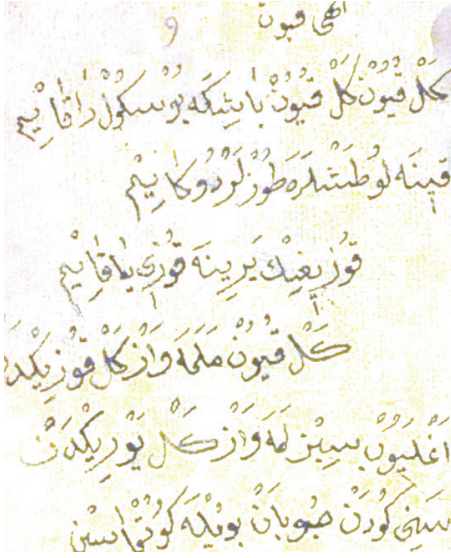 قيون
كَلْ قُيُونْ كَلْ قُيُونْ بَاشِكَه پُوسْكُولْ دَاقَايِيم
قينَه لُو طَشْلَرَه طُوزْلَرْ دُوكَايِيم
يَرِينَه قُوزِى يَاقَايِيم
كَلْ قُيُونْ مَلَمَه وَازْ كَلْ قُوزِيكْدَن
اَغْلَيُوبْ وَازْ كَلْ يَوْرِيكْدَنْ
سَنِى كُودَنْ چُوبَانْ بُويْلَه كُوتْمَاسِين